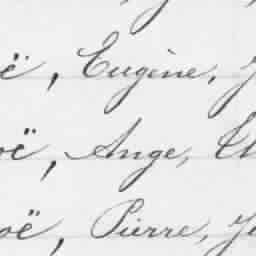 ë, Eugène,
oë, Ange,
oë, Pierre,